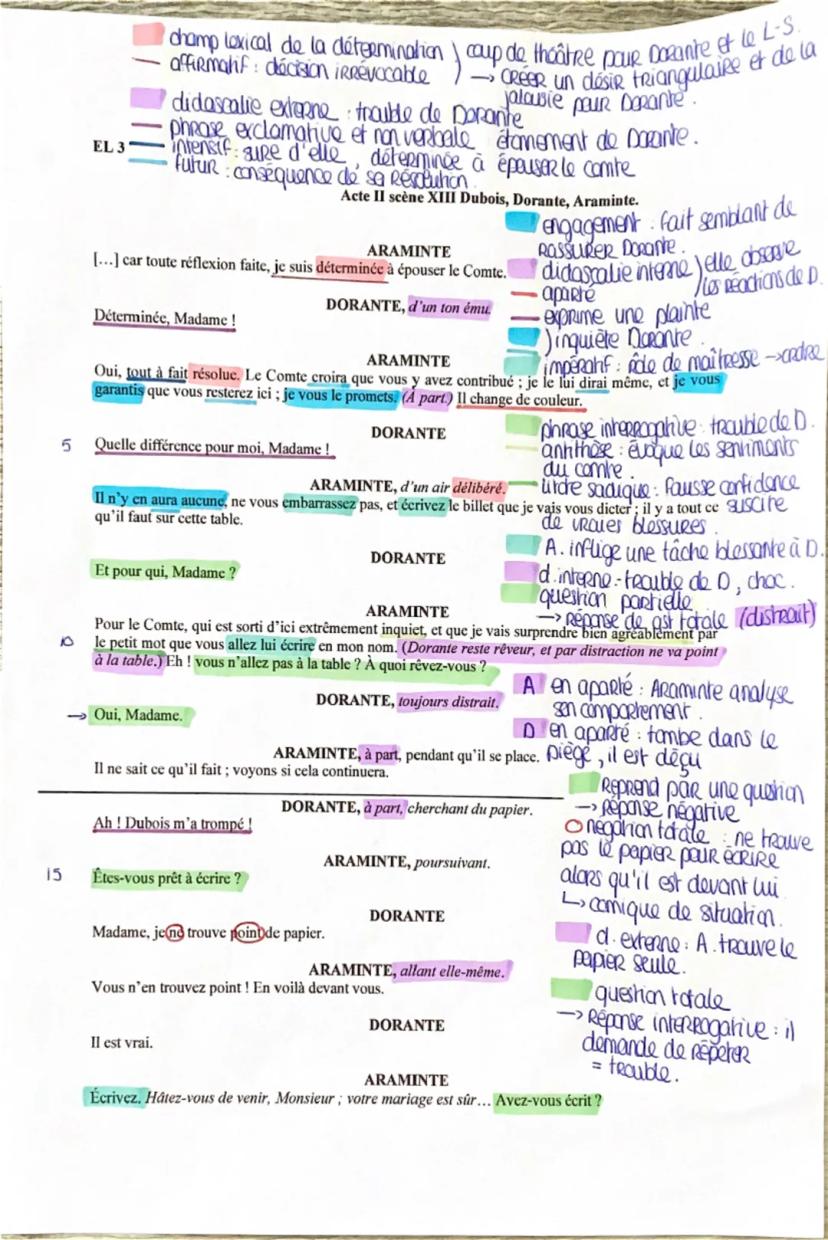 champ lexical de la détermination ) coup de théâtre pour Dorante et le L-S.
affirmatif : décision irrévocable ) → CRÉER un désir triangulaire et de la
jalousie pour Dorante.
didascalie externe : trouble de Dorante
phrase exclamative et non verbale étonnement de Dorante.
EL 3
intensif : sure d'elle, déterminée à épouser le comte
futur : conséquence de sa Résolution.
Acte II scène XIII Dubois, Dorante, Araminte.
engagement : fait semblant de
RASSURER Dorante.
ARAMINTE
[…] car toute réflexion faite, je suis déterminée à épouser le Comte.
didascalie interne ) elle observe
aparté ) les réactions de D.
DORANTE, d'un ton ému.
exprime une plainte
Déterminée, Madame !
) inquiète Dorante.
impératif : rôle de maîtresse → ordre
ARAMINTE
Oui, tout à fait résolue. Le Comte croira que vous y avez contribué ; je le lui dirai même, et je vous
garantis que vous resterez ici ; je vous le promets. (À part.) Il change de couleur.
phrase interrogative : trouble de D.
antithèse : évoque les sentiments
du comte.
DORANTE
5 Quelle différence pour moi, Madame !
lettre sadique : Fausse confidence
suscite
de vraies blessures.
ARAMINTE, d'un air délibéré.
Il n'y en aura aucune, ne vous embarrassez pas, et écrivez le billet que je vais vous dicter ; il y a tout ce
qu'il faut sur cette table.
A. inflige une tâche blessante à D.
d. interne : trouble de D, choc.
question partielle
→ réponse de qst totale (distrait)
DORANTE
Et pour qui, Madame ?
ARAMINTE
Pour le Comte, qui est sorti d'ici extrêmement inquiet, et que je vais surprendre bien agréablement par
10 le petit mot que vous allez lui écrire en mon nom. (Dorante reste rêveur, et par distraction ne va point
à la table.) Eh ! vous n'allez pas à la table ? À quoi rêvez-vous ?
A en aparté : Araminte analyse
son comportement.
D en aparté : tombe dans le
piège, il est déçu
DORANTE, toujours distrait.
→ Oui, Madame.
ARAMINTE, à part, pendant qu'il se place.
Il ne sait ce qu'il fait ; voyons si cela continuera.
Reprend par une question
→ réponse négative
O négation totale : ne trouve
pas le papier pour écrire
alors qu'il est devant lui
↳ comique de situation.
DORANTE, à part, cherchant du papier.
Ah ! Dubois m'a trompé !
ARAMINTE, poursuivant.
15 Êtes-vous prêt à écrire ?
DORANTE
Madame, je ne trouve point de papier.
d. externe : A. trouve le
papier seule.
ARAMINTE, allant elle-même.
Vous n'en trouvez point ! En voilà devant vous.
question totale
→ Réponse interrogative : il
demande de répéter
= trouble.
DORANTE
Il est vrai.
ARAMINTE
Écrivez. Hâtez-vous de venir, Monsieur ; votre mariage est sûr… Avez-vous écrit ?